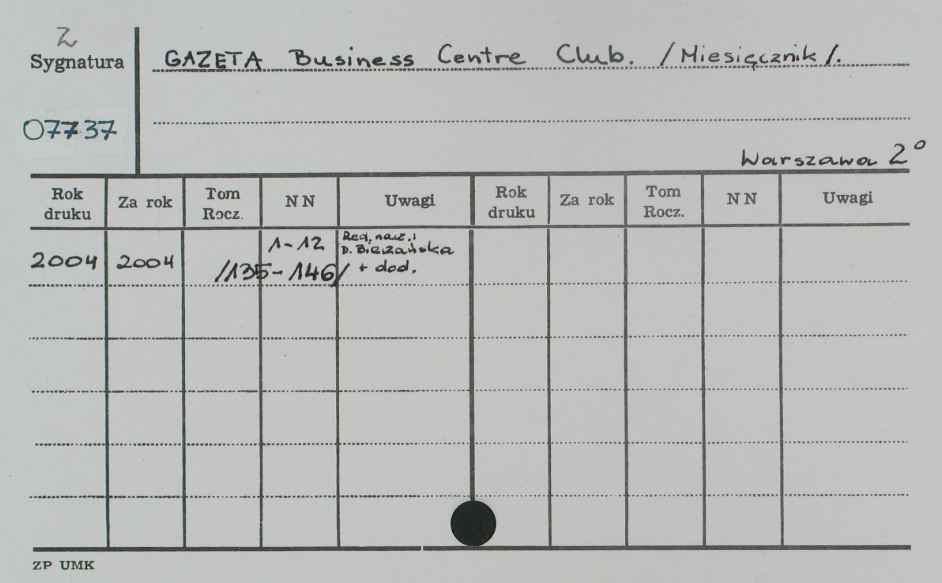 Z
Sygnatura GAZETA Business Centre Club. /Miesięcznik/.
07737
Warszawa 2°
Rok druku Za rok Tom Rocz. NN Uwagi Rok druku Za rok Tom Rocz. NN Uwagi
2004 2004 /135-146/ 1-12 Red. nacz.: D. Bierzańska + dod.
ZP UMK